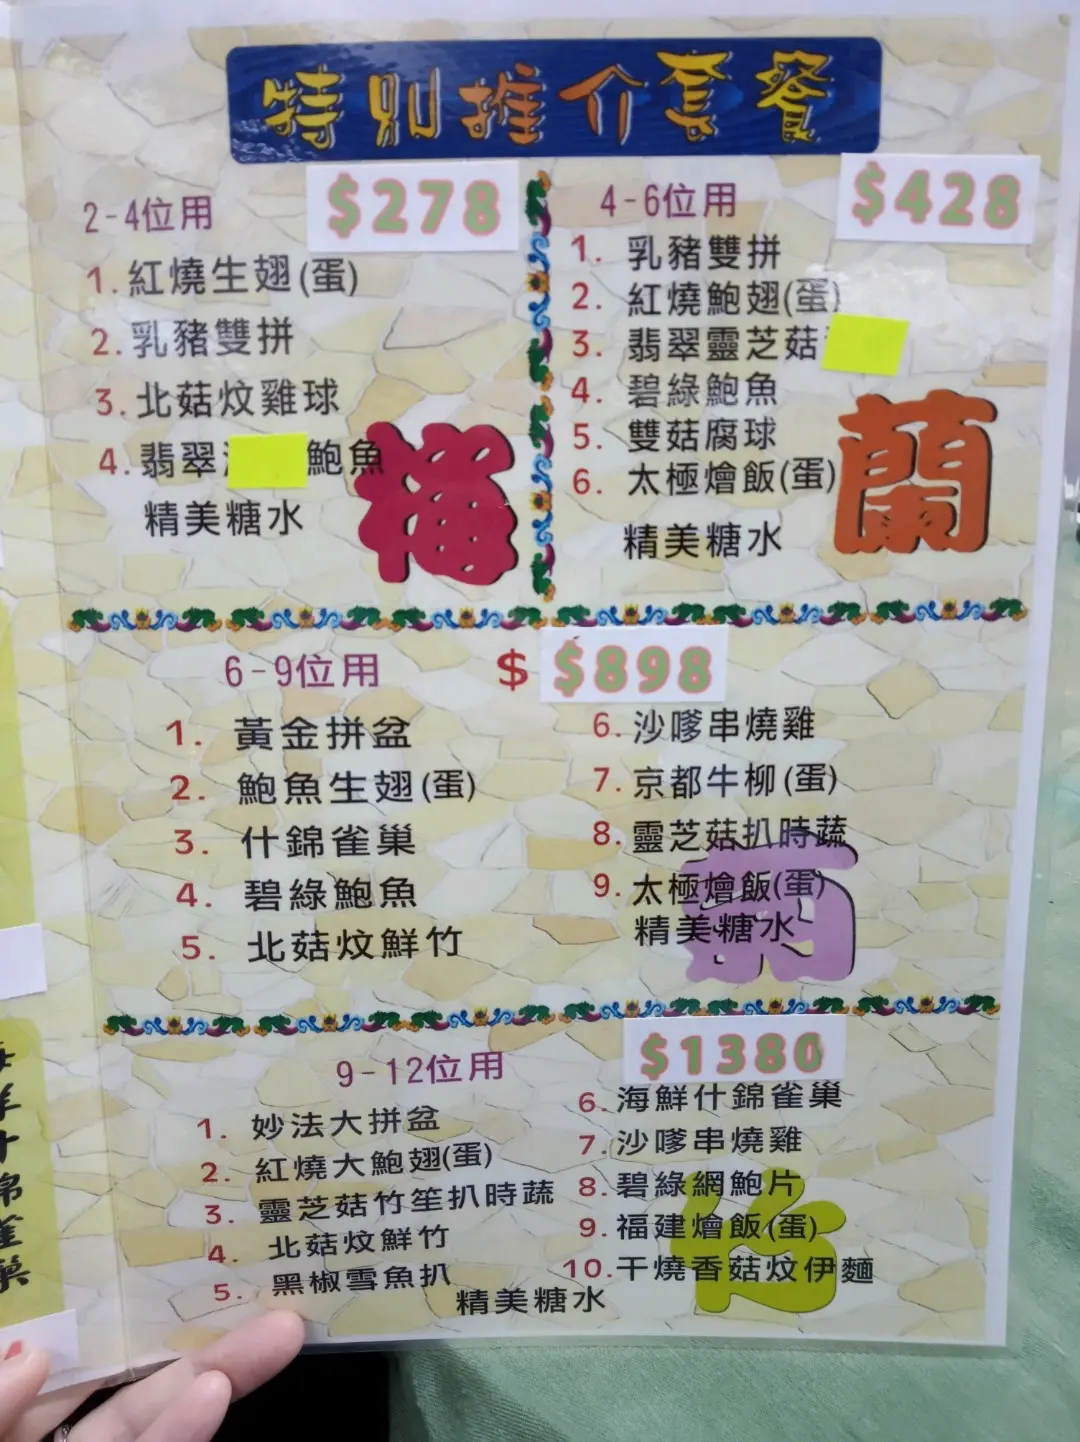 特別推介套餐
2-4位用 $278
1. 紅燒生翅(蛋)
2. 乳豬雙拼
3. 北菇炆雞球
4. 翡翠 鮑魚
精美糖水
梅
4-6位用 $428
1. 乳豬雙拼
2. 紅燒鮑翅(蛋)
3. 翡翠靈芝菇
4. 碧綠鮑魚
5. 雙菇腐球
6. 太極燴飯(蛋)
精美糖水
蘭
6-9位用 $ $898
1. 黃金拼盆
2. 鮑魚生翅(蛋)
3. 什錦雀巢
4. 碧綠鮑魚
5. 北菇炆鮮竹
6. 沙嗲串燒雞
7. 京都牛柳(蛋)
8. 靈芝菇扒時蔬
9. 太極燴飯(蛋)
精美糖水
菊
9-12位用 $1380
1. 妙法大拼盆
2. 紅燒大鮑翅(蛋)
3. 靈芝菇竹笙扒時蔬
4. 北菇炆鮮竹
5. 黑椒雪魚扒
6. 海鮮什錦雀巢
7. 沙嗲串燒雞
8. 碧綠網鮑片
9. 福建燴飯(蛋)
10. 干燒香菇炆伊麵
精美糖水
竹